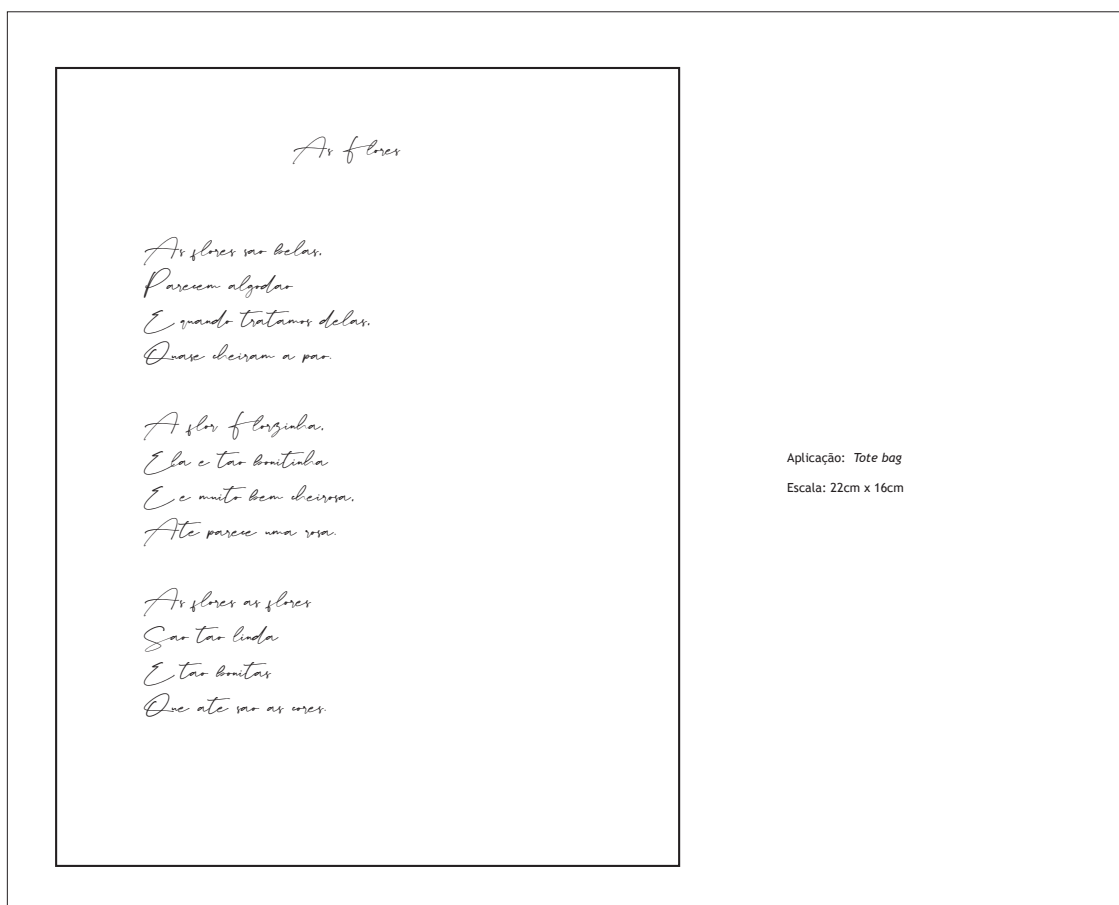 As flores
As flores sao belas,
Parecem algodao
E quando tratamos delas,
Quase cheiram a pao.
A flor Florzinha,
Ela e tao bonitinha
E e muito bem cheirosa,
Ate parece uma rosa.
As flores as flores
Sao tao linda
E tao bonitas
Que ate sao as cores.
Aplicação: Tote bag
Escala: 22cm x 16cm